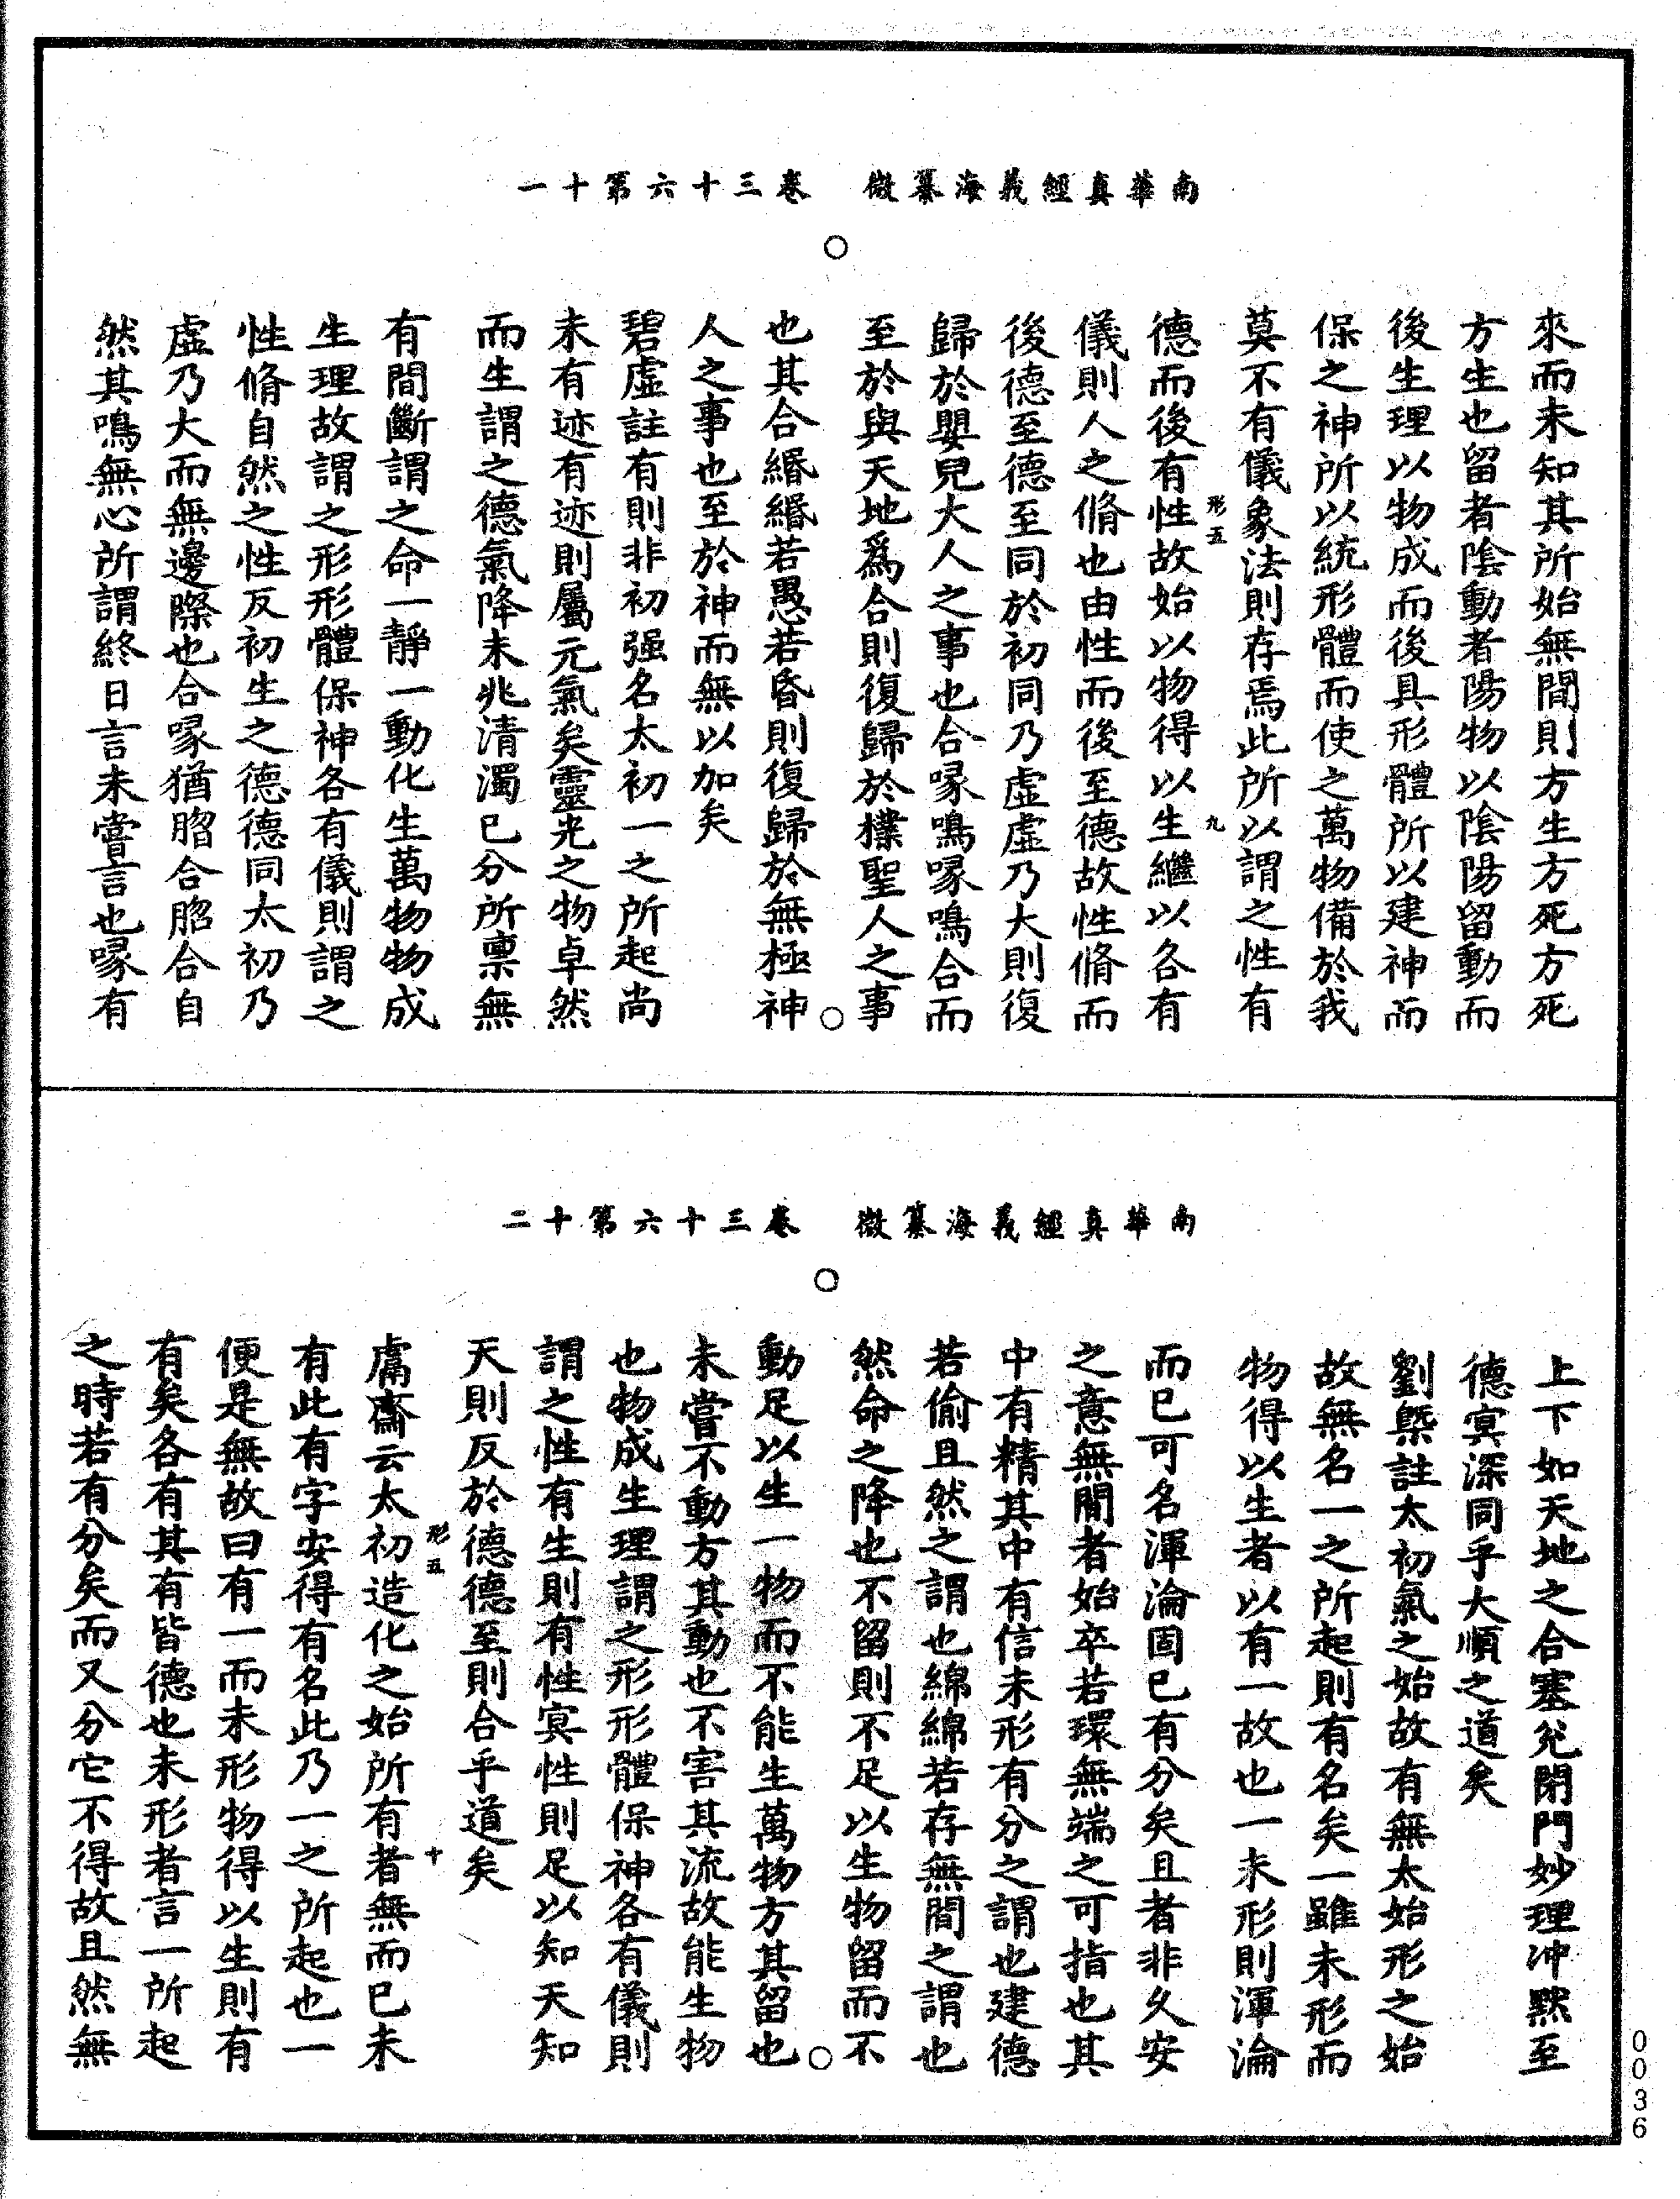 南華真經義海纂微　卷三十六第十一
來而未知其所始無間則方生方死方死
方生也留者陰動者陽物以陰陽留動而
後生理以物成而後具形體所以建神而
保之神所以統形體而使之萬物備於我
莫不有儀象法則存焉此所以謂之性有
形五　九
德而後有性故始以物得以生繼以各有
儀則人之脩也由性而後至德故性脩而
後德至德至同於初同乃虛虛乃大則復
歸於嬰兒大人之事也合喙鳴喙鳴合而
至於與天地爲合則復歸於樸聖人之事
也其合緡緡若愚若昏則復歸於無極神
人之事也至於神而無以加矣
碧虛註有則非初强名太初一之所起尚
未有迹有迹則屬元氣矣靈光之物卓然
而生謂之德氣降未兆清濁已分所禀無
有間斷謂之命一靜一動化生萬物物成
生理故謂之形形體保神各有儀則謂之
性脩自然之性反初生之德德同太初乃
虛乃大而無邊際也合喙猶㗼合㗼合自
然其鳴無心所謂終日言未嘗言也喙有
南華真經義海纂微　卷三十六第十二
上下如天地之合塞兌閉門妙理冲黙至
德㝠深同乎大順之道矣
劉槩註太初氣之始故有無太始形之始
故無名一之所起則有名矣一雖未形而
物得以生者以有一故也一未形則渾淪
而已可名渾淪固已有分矣且者非久安
之意無間者始卒若環無端之可指也其
中有精其中有信未形有分之謂也建德
若偷且然之謂也綿綿若存無間之謂也
然命之降也不留則不足以生物留而不
動足以生一物而不能生萬物方其留也
未嘗不動方其動也不害其流故能生物
也物成生理謂之形形體保神各有儀則
謂之性有生則有性㝠性則足以知天知
天則反於德德至則合乎道矣
形五　十
鬳齋云太初造化之始所有者無而已未
有此有字安得有名此乃一之所起也一
便是無故曰有一而未形物得以生則有
有矣各有其有皆德也未形者言一所起
之時若有分矣而又分它不得故且然無
0036